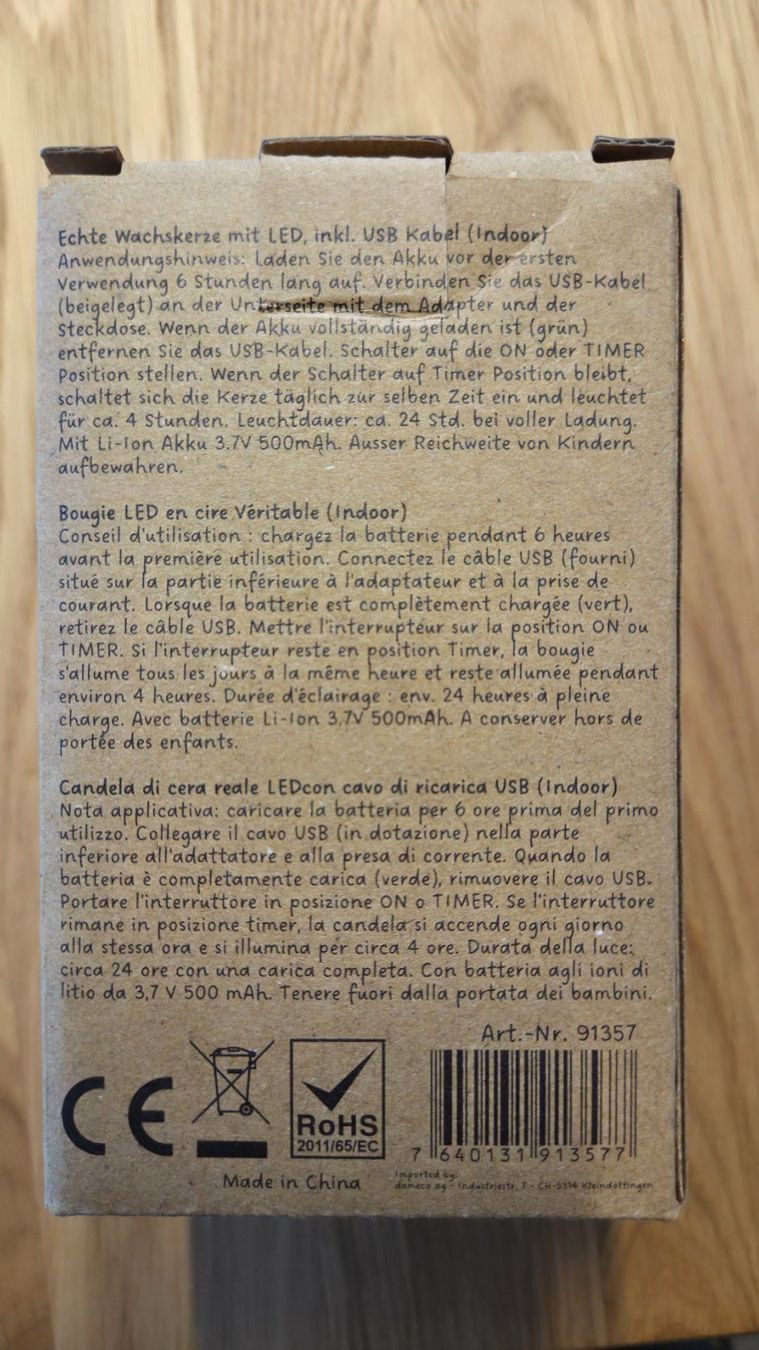 Echte Wachskerze mit LED, inkl. USB Kabel (Indoor)
Anwendungshinweis: Laden Sie den Akku vor der ersten
Verwendung 6 Stunden lang auf. Verbinden Sie das USB-Kabel
(beigelegt) an der Unterseite mit dem Adapter und der
Steckdose. Wenn der Akku vollständig geladen ist (grün)
entfernen Sie das USB-Kabel. Schalter auf die ON oder TIMER
Position stellen. Wenn der Schalter auf Timer Position bleibt,
schaltet sich die Kerze täglich zur selben Zeit ein und leuchtet
für ca. 4 Stunden. Leuchtdauer: ca. 24 Std. bei voller Ladung.
Mit Li-Ion Akku 3.7V 500mAh. Ausser Reichweite von Kindern
aufbewahren.
Bougie LED en cire Véritable (Indoor)
Conseil d'utilisation : chargez la batterie pendant 6 heures
avant la première utilisation. Connectez le câble USB (fourni)
situé sur la partie inférieure à l'adaptateur et à la prise de
courant. Lorsque la batterie est complètement chargée (vert),
retirez le câble USB. Mettre l'interrupteur sur la position ON ou
TIMER. Si l'interrupteur reste en position Timer, la bougie
s'allume tous les jours à la même heure et reste allumée pendant
environ 4 heures. Durée d'éclairage : env. 24 heures à pleine
charge. Avec batterie Li-Ion 3.7V 500mAh. A conserver hors de
portée des enfants.
Candela di cera reale LEDcon cavo di ricarica USB (Indoor)
Nota applicativa: caricare la batteria per 6 ore prima del primo
utilizzo. Collegare il cavo USB (in dotazione) nella parte
inferiore all'adattatore e alla presa di corrente. Quando la
batteria è completamente carica (verde), rimuovere il cavo USB.
Portare l'interruttore in posizione ON o TIMER. Se l'interruttore
rimane in posizione timer, la candela si accende ogni giorno
alla stessa ora e si illumina per circa 4 ore. Durata della luce:
circa 24 ore con una carica completa. Con batteria agli ioni di
litio da 3,7 V 500 mAh. Tenere fuori dalla portata dei bambini.
Art.-Nr. 91357
CE
RoHS
2011/65/EC
7 640131 913577
Made in China
Imported by:
dameco ag - Industriestr. 7 - CH-5314 Kleindöttingen